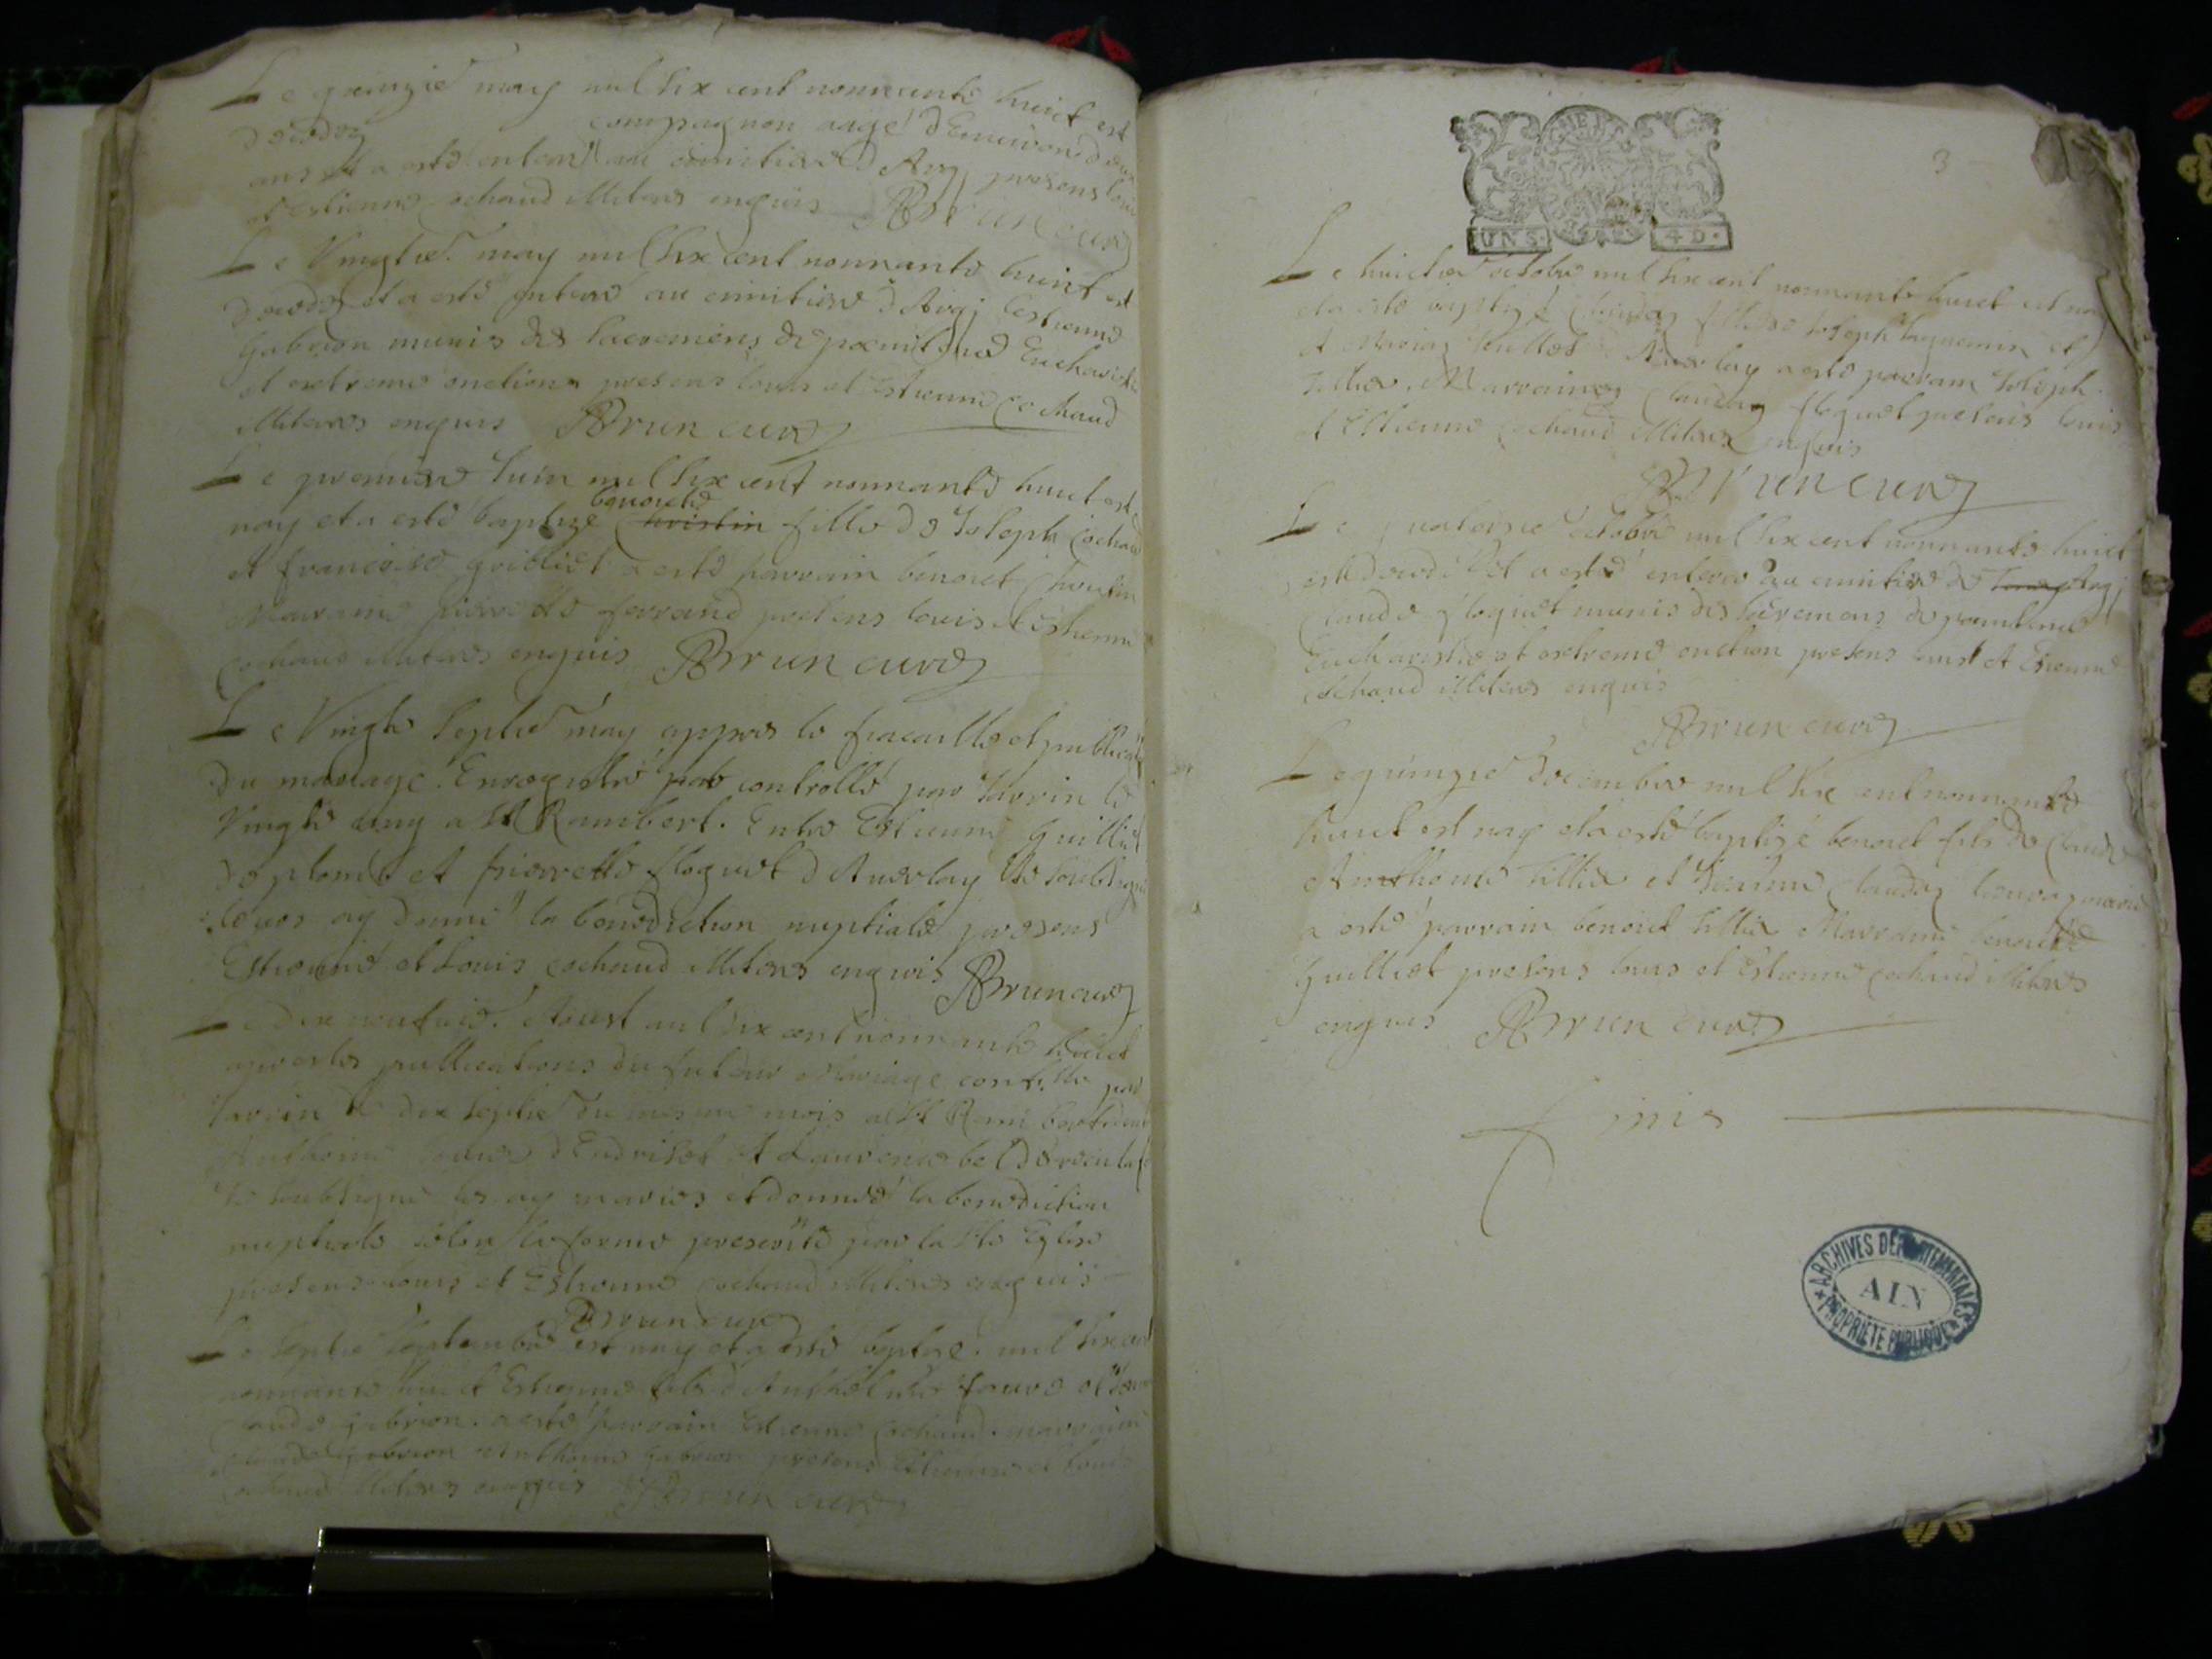 Le quinzie may mil six cent nonnante huict est
decedez compagnon aagé d'Environ deux
ans et a esté enterré au cimitiere d'Argj presens louis
et estienne cochaud illiteres enquis Brun curé
Le Vingtie may mil six cent nonnante huict est
decedé et a esté enterré au cimitiere d'Argj Estienne
Gabrion munis des sacremens de pœnitence Eucharistie
et extreme onction presens louis et Estienne cochaud
illiteres enquis Brun curé
Le premiere Iuin mil six cent nonnante huict est
benoicte
nay et a esté baptizé christin fille de Ioseph Cochaud
et francoise grilliet a esté parrain benoict christin
Marraine pierrette ferrand presens louis et estienne
cochaud illiteres enquis Brun curé
Le Vingte septie may appres le fiacaille et publicaon
du mariage Enregistré par controlle par Tavrin le
Vingte cinq a St Rambert. Entre Estienne Guilliet
de plomb et pierrette floquet d'Averlay Ie soubsigné
leurs ay donné la benediction nuptiale presens
Estienne et Louis cochaud illiteres enquis Brun curé
Le dix Aoust mil six cent nonnante huict
apres les publications du futeur Mariage controlle par
Tavrin le dix septie du mesme mois a St Rambert
Anthoine et Laurence
Ie soubsigné les ay mariés et donneé la benediction
nuptiale selon la forme prescritte par la Ste Eglise
presens Louis et Estienne cochaud illiteres enquis
Brun curé
Le septie septembre est nay et a esté baptisé mil six cent
nonnante huict Estienne fils d'Anthelme faure et
claude gabrion a esté parrain Estienne cochaud marraine
claude gabrion Anthoine gabrion presens Estienne et louis
cochaud illiteres enquis Brun curé
3
GNERT
UN S. 4 D.
Le huictie octobre mil six cent nonnante huict est nay
et a esté baptizé Claudaz fille de Ioseph Iaquemin et
et d'Averlay a esté parrain Ioseph
Tillier Marraine Claudaz floquet presens louis
et Estienne cochaud illiteres enquis
Brun curé
Le quatorzie octobre mil six cent nonnante huict
est decedé et a esté enterré au cimitiere de Argj
Claude floquet munis des sacremens de pœnitence
Eucharistie et extreme onction presens louis et Estienne
cochaud illiteres enquis
Brun curé
Le quinzie decembre mil six cent nonnante
huict est nay et a esté baptizé benoict fils de Claude
Anthoine Tillier et Ieanne Claudaz
a esté parrain benoict Tillier Marraine benoicte
Guilliet presens louis et Estienne cochaud illiteres
enquis Brun curé
finis
ARCHIVES DÉPARTEMENTALES
AIN
PROPRIÉTÉ PUBLIQUE